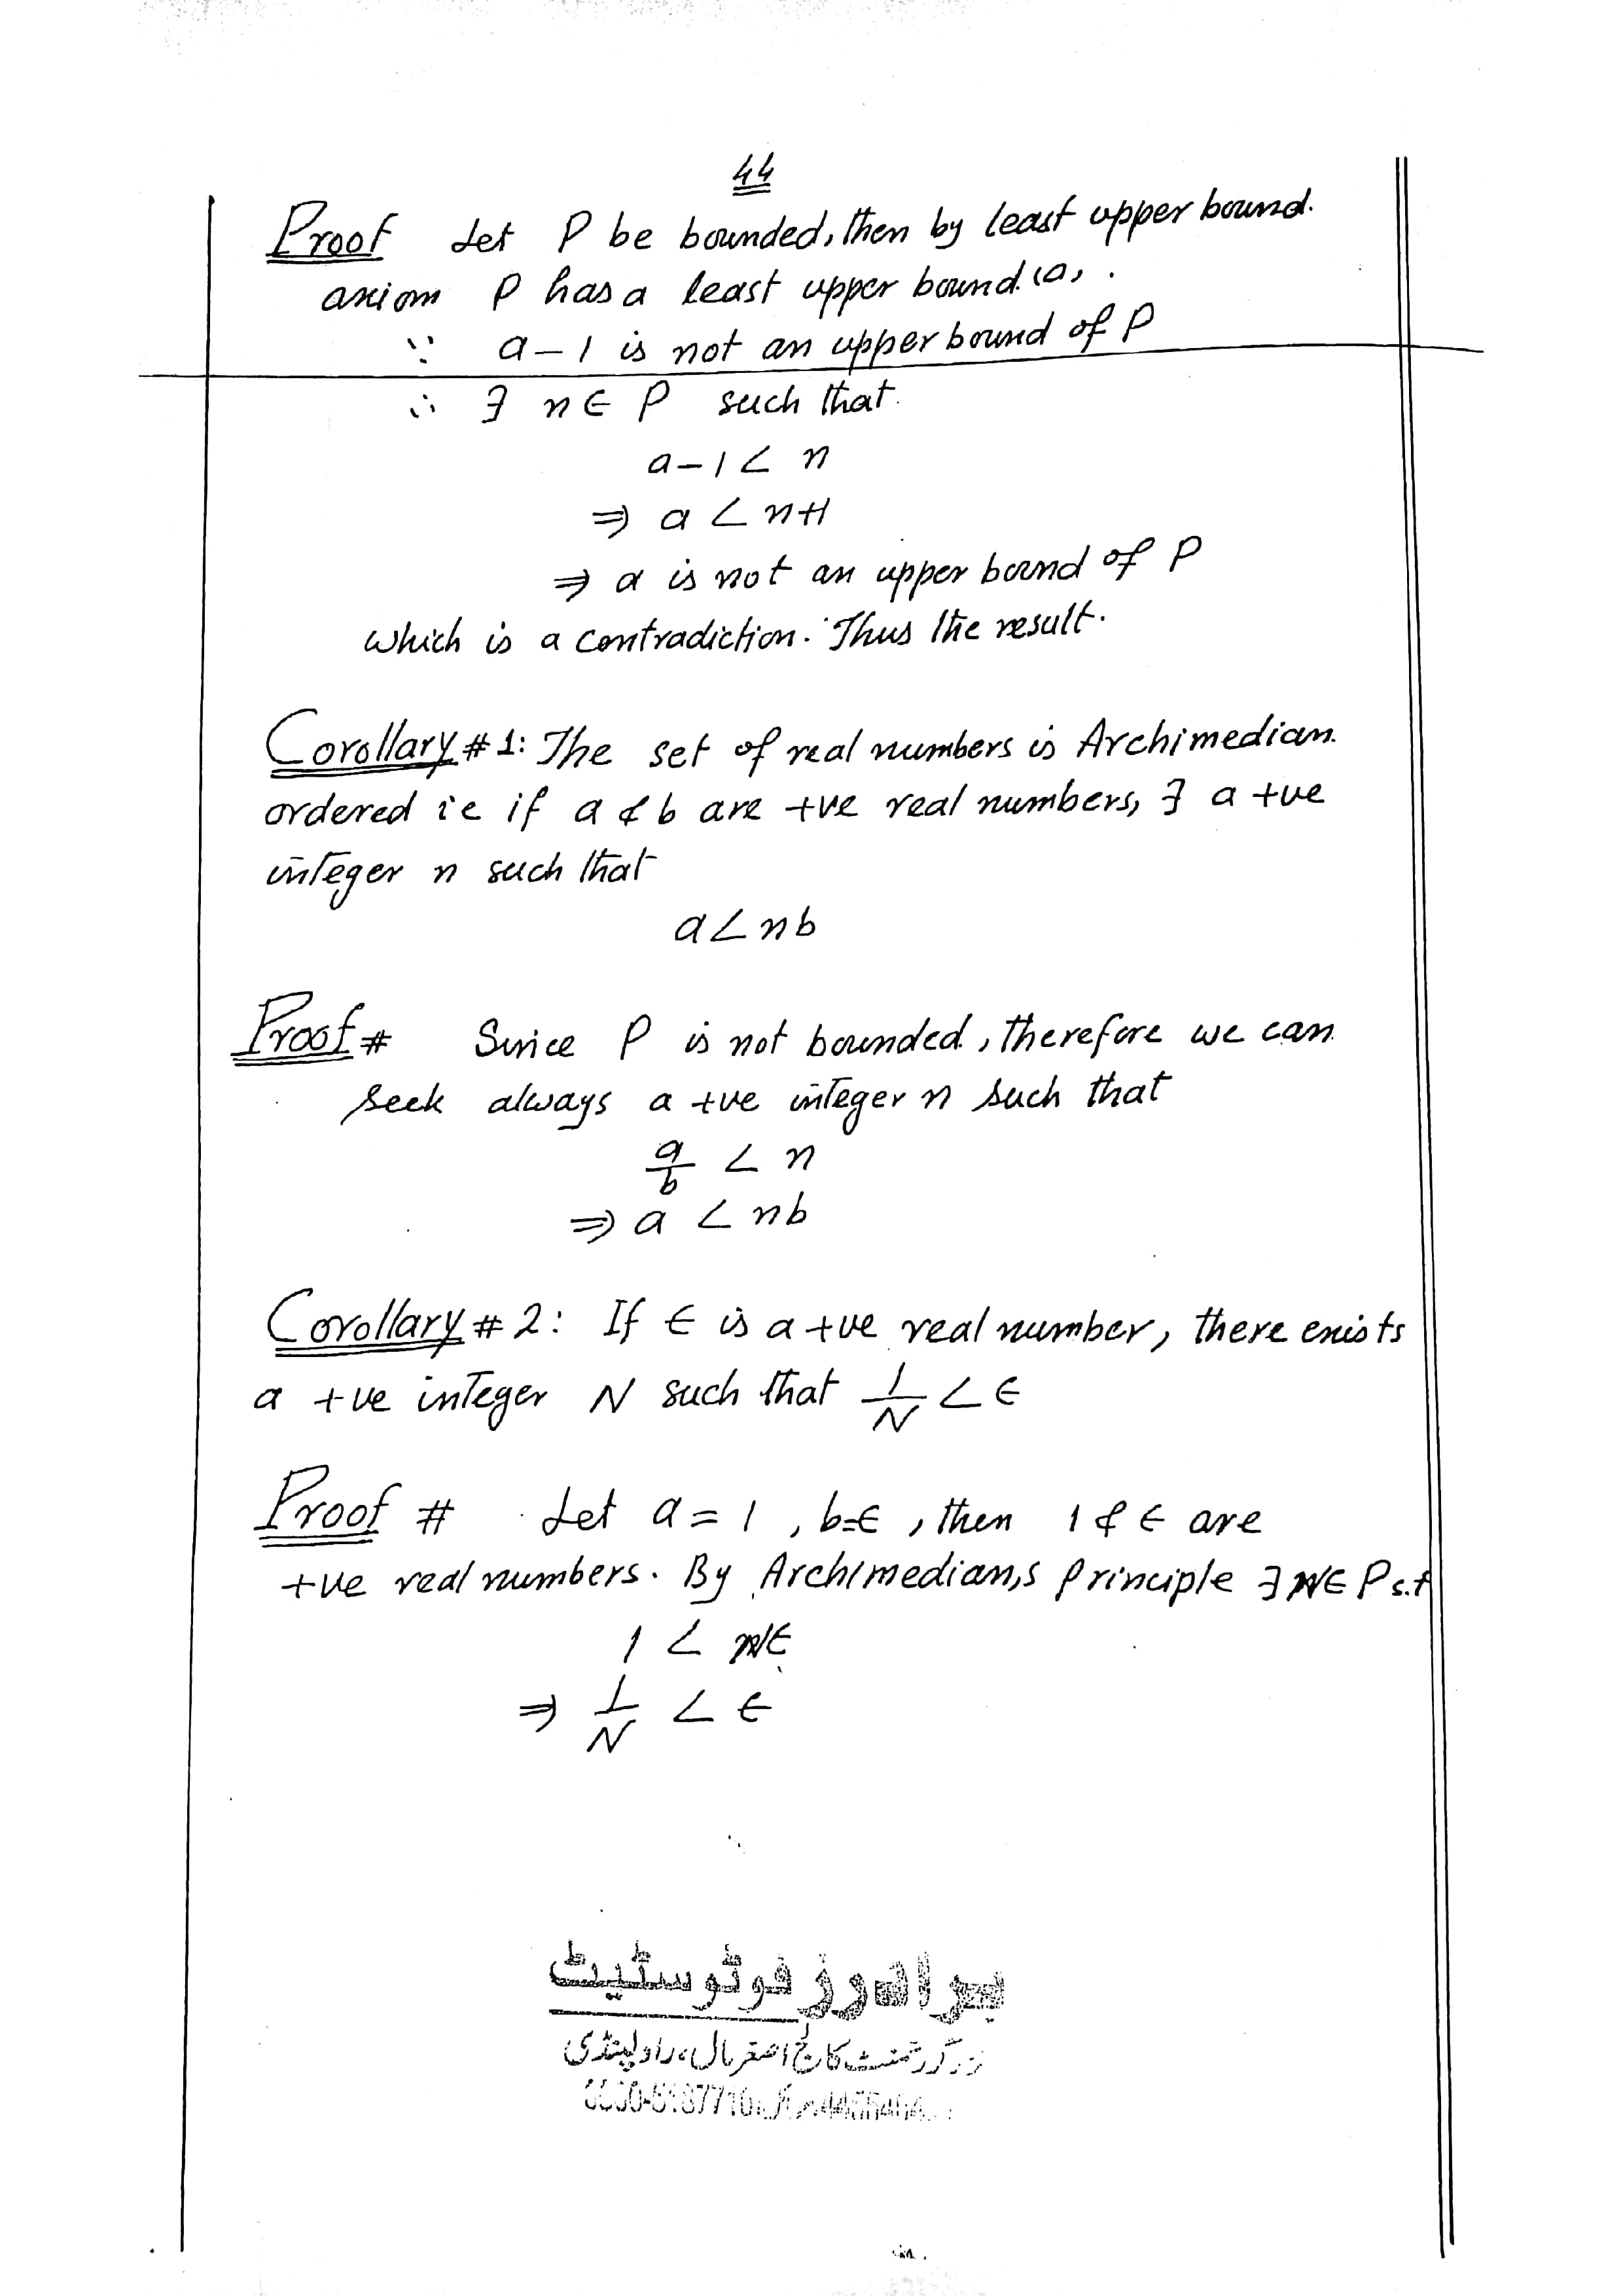 44
Proof Let P be bounded, then by least upper bound.
axiom P has a least upper bound 'a, .
∵ a-1 is not an upper bound of P
∴ ∃ n ∈ P such that
a-1 < n
⇒ a < n+1
⇒ a is not an upper bound of P
which is a contradiction. Thus the result.
Corollary #1: The set of real numbers is Archimedian
ordered ie if a & b are +ve real numbers, ∃ a +ve
integer n such that
a < nb
Proof # Since P is not bounded, therefore we can
seek always a +ve integer n such that
a/b < n
⇒ a < nb
Corollary # 2: If ϵ is a +ve real number, there exists
a +ve integer N such that 1/N < ϵ
Proof # Let a = 1, b=ϵ, then 1 & ϵ are
+ve real numbers. By Archimedian,s Principle ∃ N ∈ P s.t
1 < Nϵ
⇒ 1/N < ϵ
برادرز فوٹوسٹیٹ
گورنمنٹ کالج اصغرمال، راولپنڈی